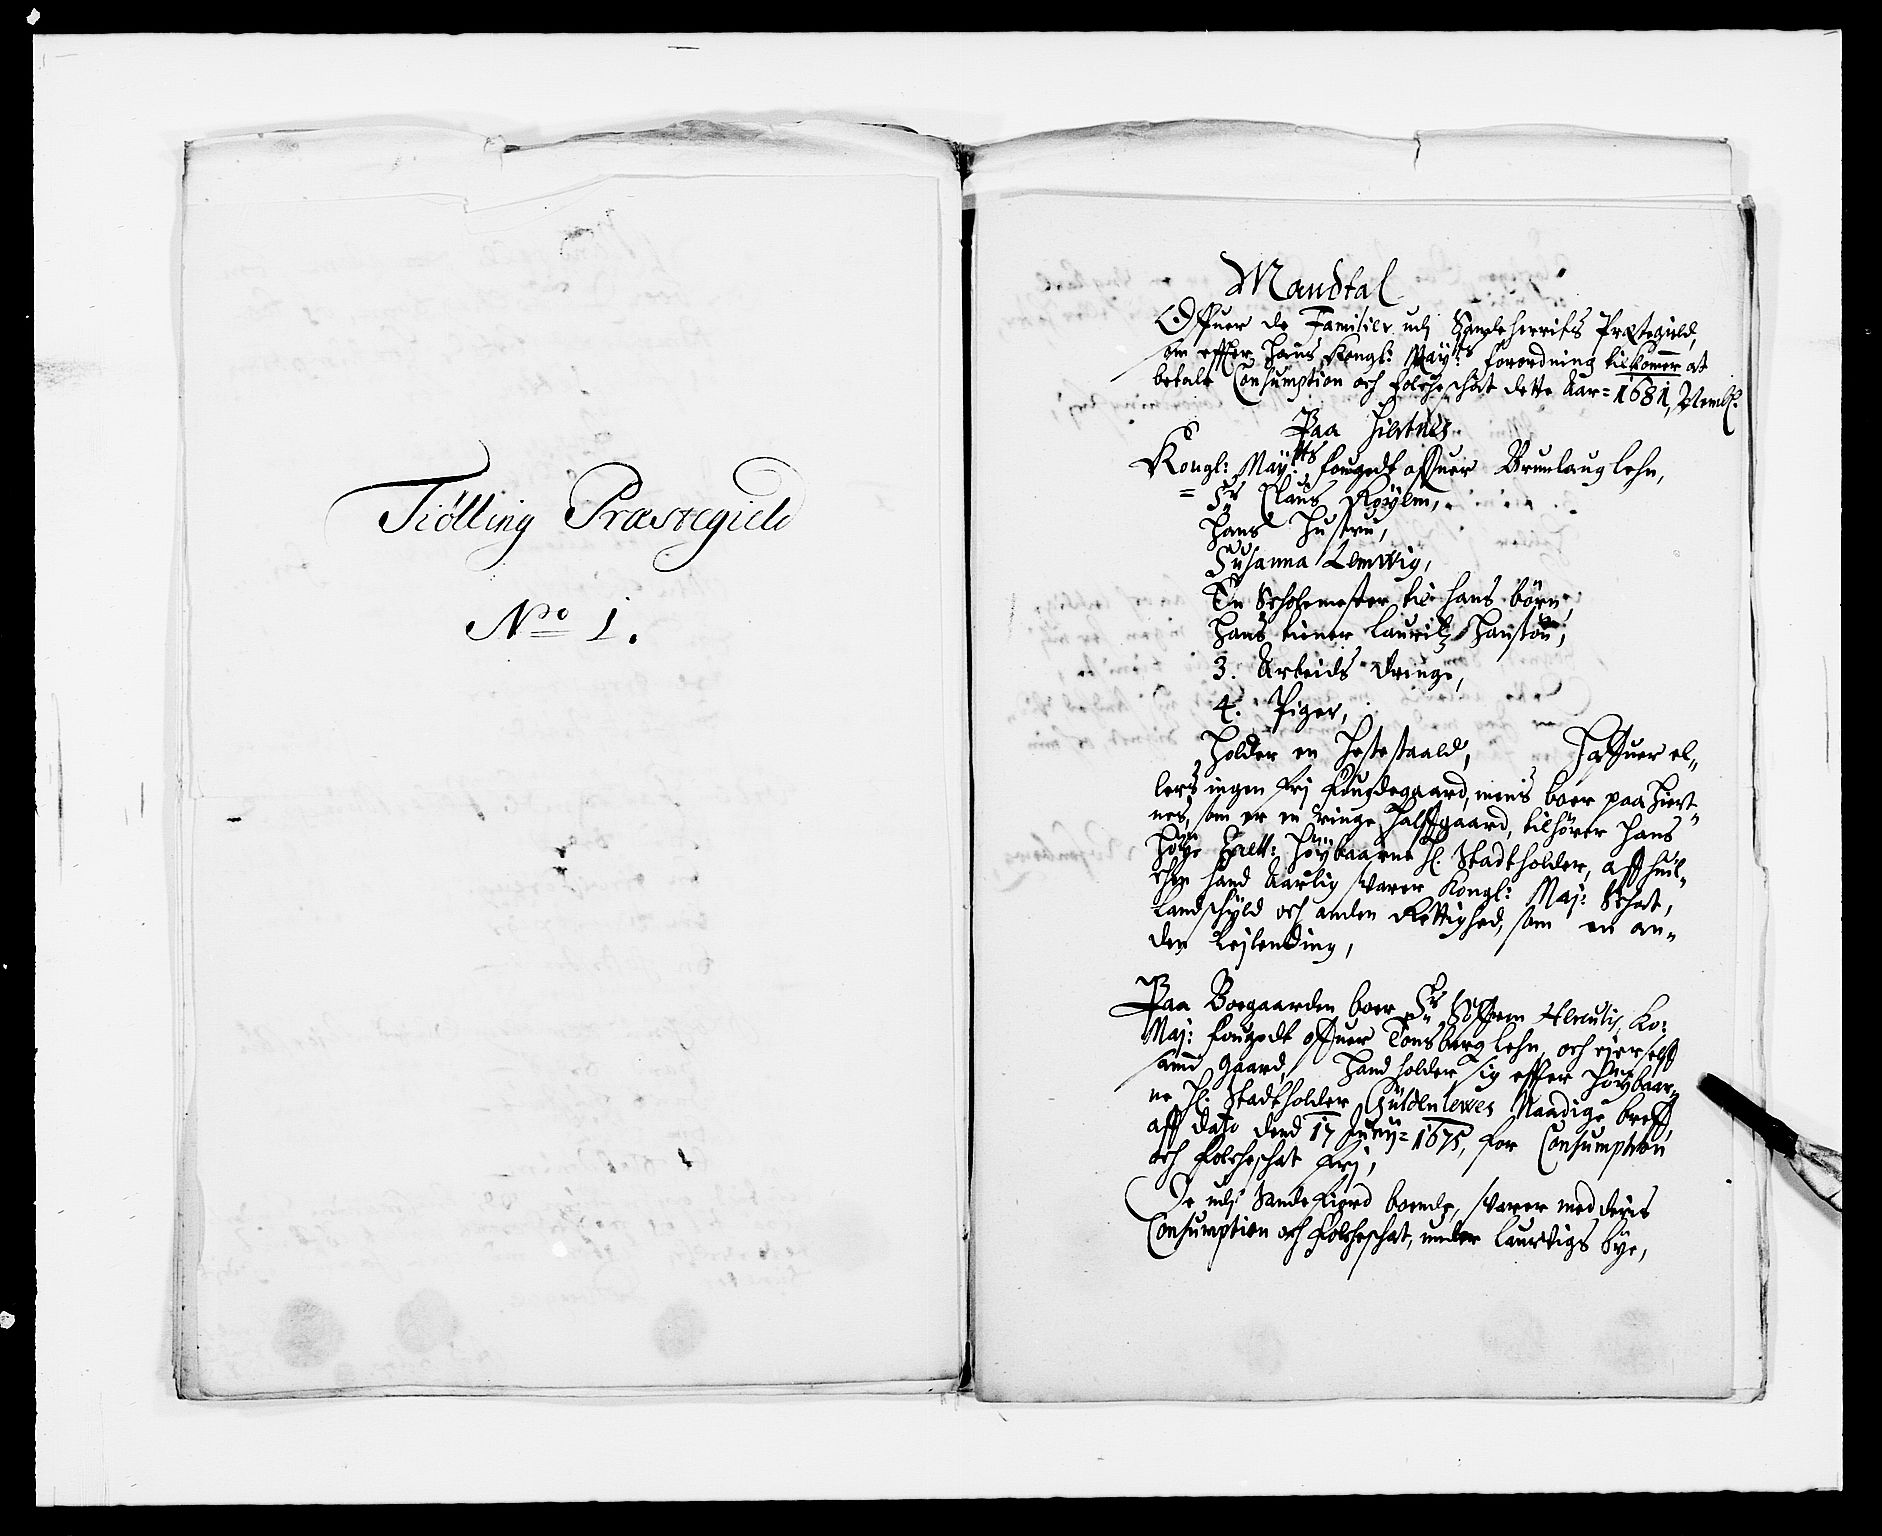 Tiölling Præstegield
No 1.
Mandtal
Offuer de Familier udj Sandeherrits Præstegield,
som effter Hans Kongl: Maÿ:ts forordning tilkommer at
betale Consumption och folcheschat dette Aar = 1681, Nemlig:
Paa Hiertnes
Kongl: Maÿ:tts fougedt offuer Brunlaug lehn,
Sr Claus Röÿem,
Hans Hustru,
Susanna Lemwig,
En Scholemester til hans börn,
Hans tiener Lauritz Hansön,
3. Arbeids drenge,
4. Piger,
Holder en Hestestaald, Haffuer el-
lers ingen frj fougdegaard, mens boer paa Hiert-
nes, som er en ringe Halffgaard, tilhörer Hans
Höye Excell: Höÿbaarne H: Stadtholder, aff huil-
chen hand Aarlig svarer Kongl: Maj: Schat,
Landschÿld och anden Rettighed, som en an-
den Lejlending,
Paa Boegaarden boer Sr Söffren Herculis, Ko:
Maj: fougedt offuer Tönsberg lehn, och ejer selff
samme Gaard, Hand holder sig effter Höÿbaar-
ne H: Stadtholder Güldenlewes Naadige breff,
aff dato dend 17 Junÿ = 1675, for Consumption
och folcheschat frj,
De udj Sandefiord boende, svarer med deris
Consumption och folcheschat, under Laurwigs bÿe,